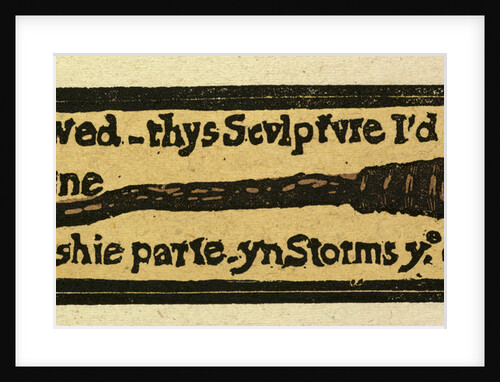 wed - thys Scvlptvre I'd
ne
shie parte - yn Storms y.e